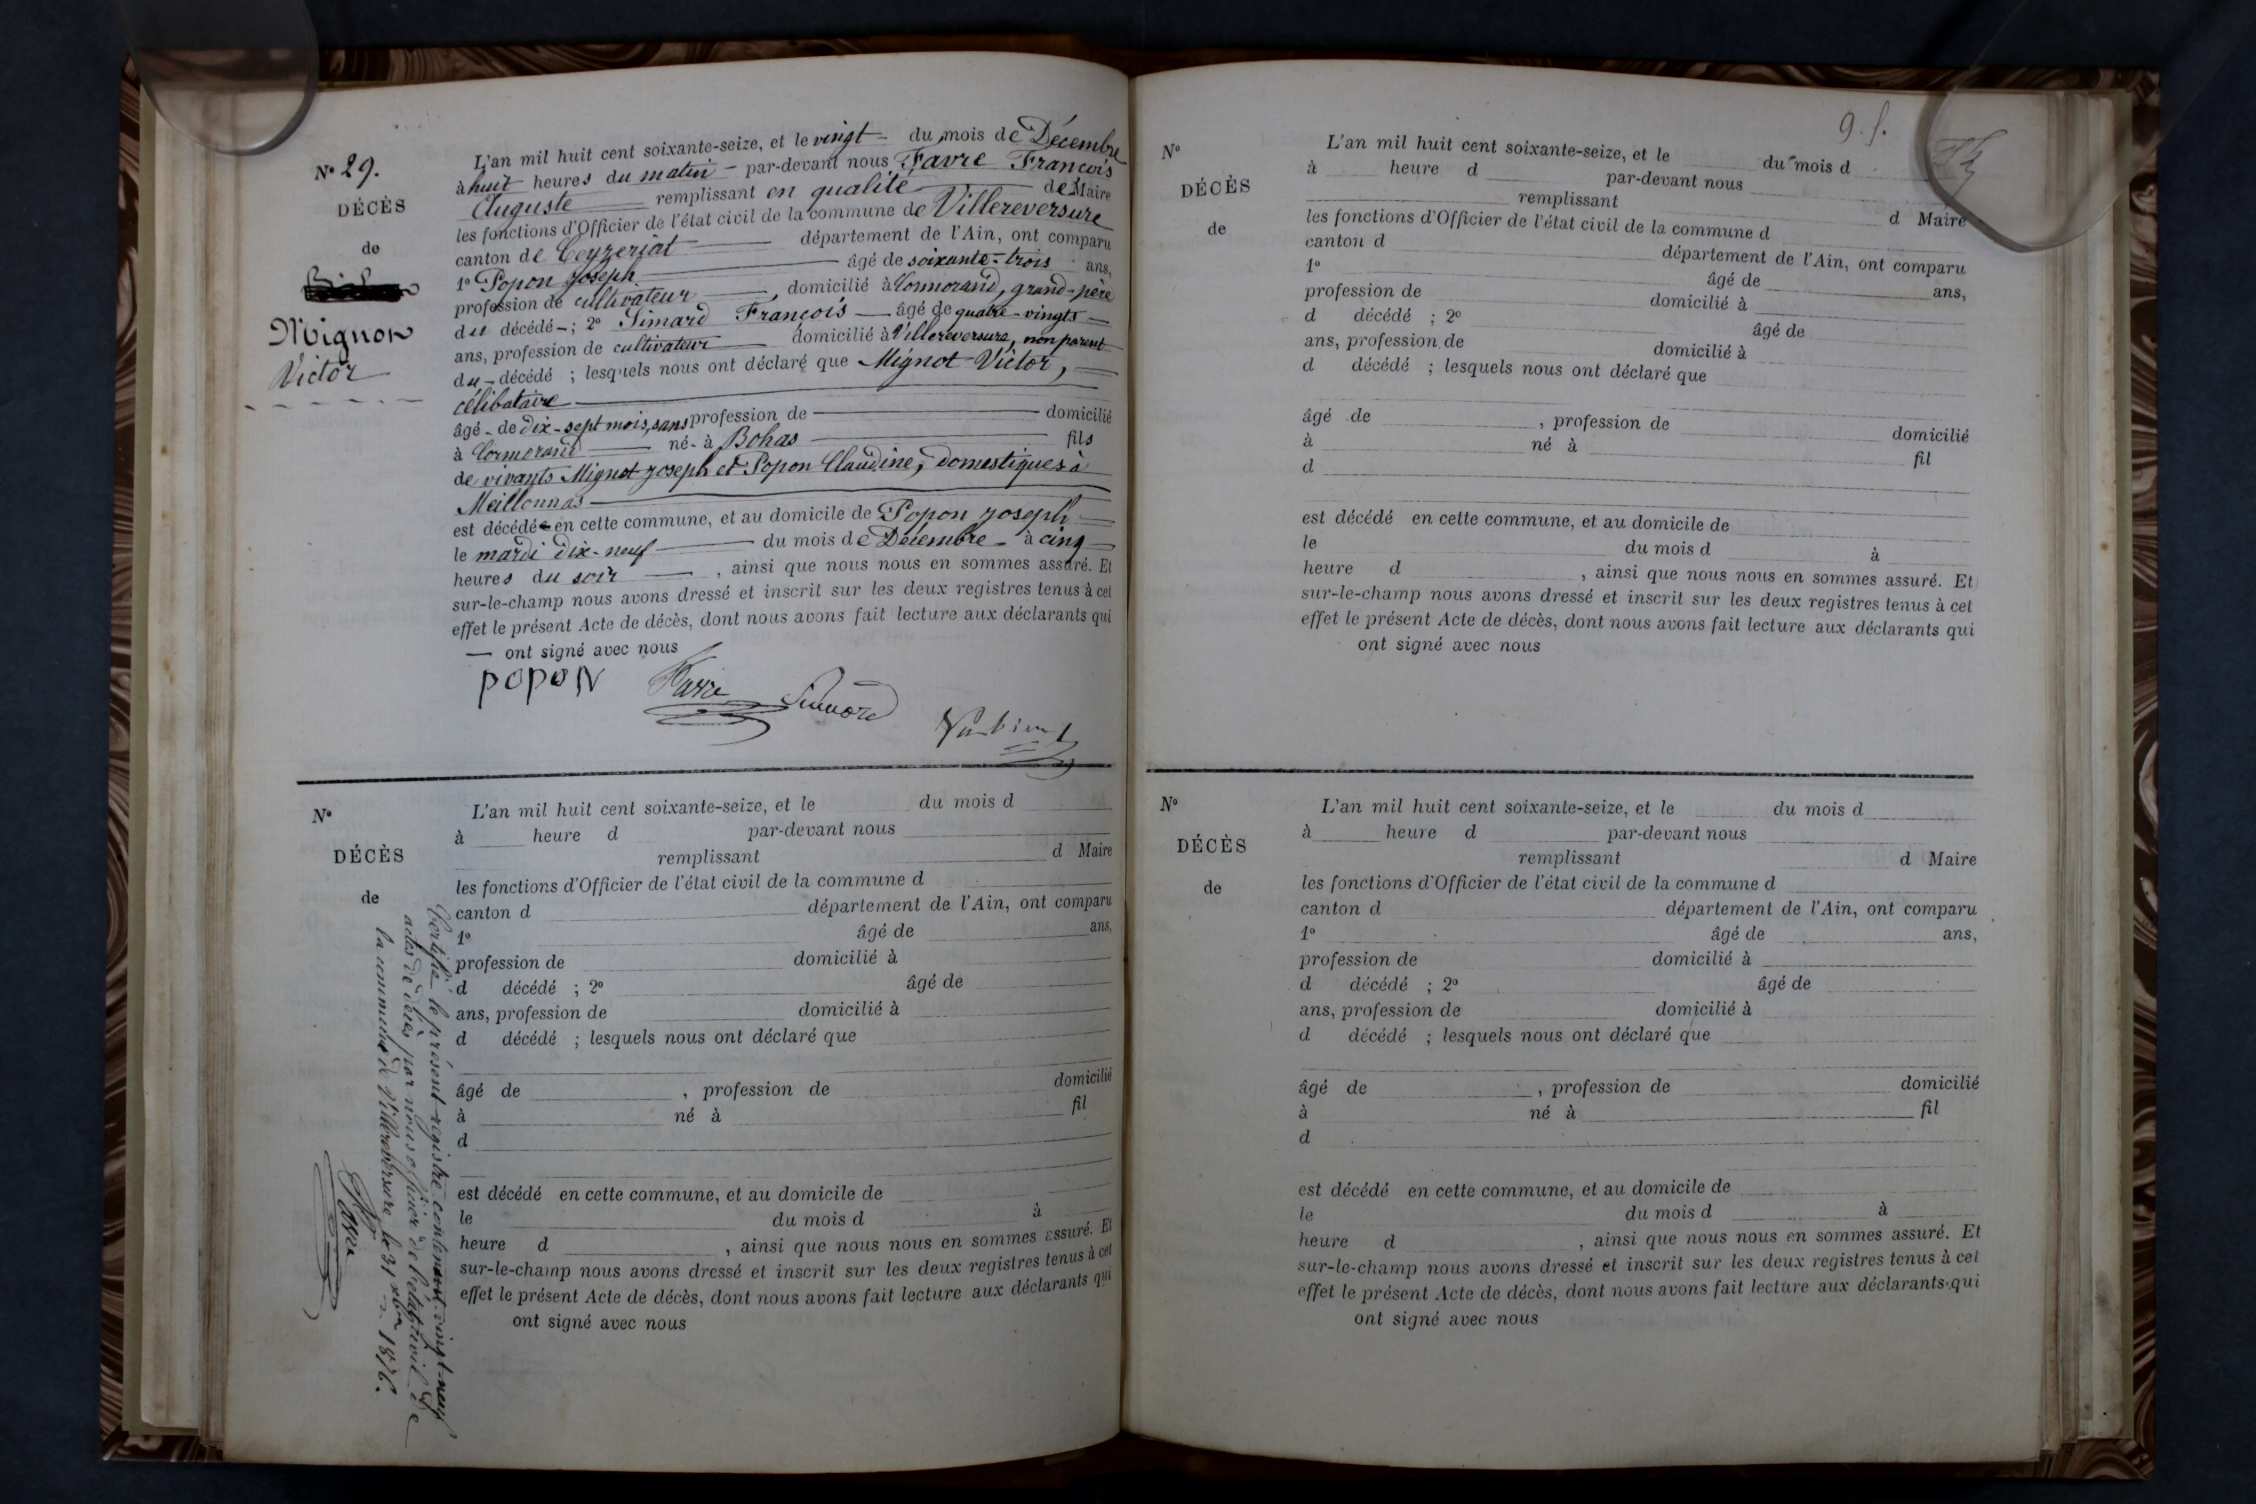 N° 29.
DÉCÈS
de
Mignon
Victor
L'an mil huit cent soixante-seize, et le vingt du mois de Décembre
à huit heures du matin par-devant nous Favre François
Auguste remplissant en qualité de Maire
les fonctions d'Officier de l'état civil de la commune de Villereversure
canton de Ceyzeriat département de l'Ain, ont comparu
1° Popon Joseph âgé de soixante-trois ans,
profession de cultivateur, domicilié à Cormorand, grand-père
du décédé ; 2° Simard François âgé de quatre-vingts
ans, profession de cultivateur domicilié à Villereversure, non parent
du décédé ; lesquels nous ont déclaré que Mignot Victor,
célibataire
âgé de dix-sept mois, sans profession de domicilié
à Cormorand né à Bohas fils
de vivants Mignot Joseph et Popon Claudine, domestiques à
Meillonnas
est décédé en cette commune, et au domicile de Popon Joseph
le mardi dix-neuf du mois de Décembre à cinq
heures du soir, ainsi que nous nous en sommes assuré. Et
sur-le-champ nous avons dressé et inscrit sur les deux registres tenus à cet
effet le présent Acte de décès, dont nous avons fait lecture aux déclarants qui
ont signé avec nous
POPON Favre Simard
N°
DÉCÈS
de
L'an mil huit cent soixante-seize, et le du mois d
à heure d par-devant nous
remplissant d Maire
les fonctions d'Officier de l'état civil de la commune d
canton d département de l'Ain, ont comparu
1° âgé de ans,
profession de domicilié à
d décédé ; 2° âgé de
ans, profession de domicilié à
d décédé ; lesquels nous ont déclaré que
âgé de , profession de domicilié
à né à fil
d
est décédé en cette commune, et au domicile de
le du mois d à
heure d , ainsi que nous nous en sommes assuré. Et
sur-le-champ nous avons dressé et inscrit sur les deux registres tenus à cet
effet le présent Acte de décès, dont nous avons fait lecture aux déclarants qui
ont signé avec nous
Certifié le présent registre contenant vingt-neuf
actes de décès par nous officier de l'état civil de
la commune de Villereversure le 31 Xbre 1876.
Favre
9. f.
N°
DÉCÈS
de
L'an mil huit cent soixante-seize, et le du mois d
à heure d par-devant nous
remplissant d Maire
les fonctions d'Officier de l'état civil de la commune d
canton d département de l'Ain, ont comparu
1° âgé de ans,
profession de domicilié à
d décédé ; 2° âgé de
ans, profession de domicilié à
d décédé ; lesquels nous ont déclaré que
âgé de , profession de domicilié
à né à fil
d
est décédé en cette commune, et au domicile de
le du mois d à
heure d , ainsi que nous nous en sommes assuré. Et
sur-le-champ nous avons dressé et inscrit sur les deux registres tenus à cet
effet le présent Acte de décès, dont nous avons fait lecture aux déclarants qui
ont signé avec nous
N°
DÉCÈS
de
L'an mil huit cent soixante-seize, et le du mois d
à heure d par-devant nous
remplissant d Maire
les fonctions d'Officier de l'état civil de la commune d
canton d département de l'Ain, ont comparu
1° âgé de ans,
profession de domicilié à
d décédé ; 2° âgé de
ans, profession de domicilié à
d décédé ; lesquels nous ont déclaré que
âgé de , profession de domicilié
à né à fil
d
est décédé en cette commune, et au domicile de
le du mois d à
heure d , ainsi que nous nous en sommes assuré. Et
sur-le-champ nous avons dressé et inscrit sur les deux registres tenus à cet
effet le présent Acte de décès, dont nous avons fait lecture aux déclarants qui
ont signé avec nous